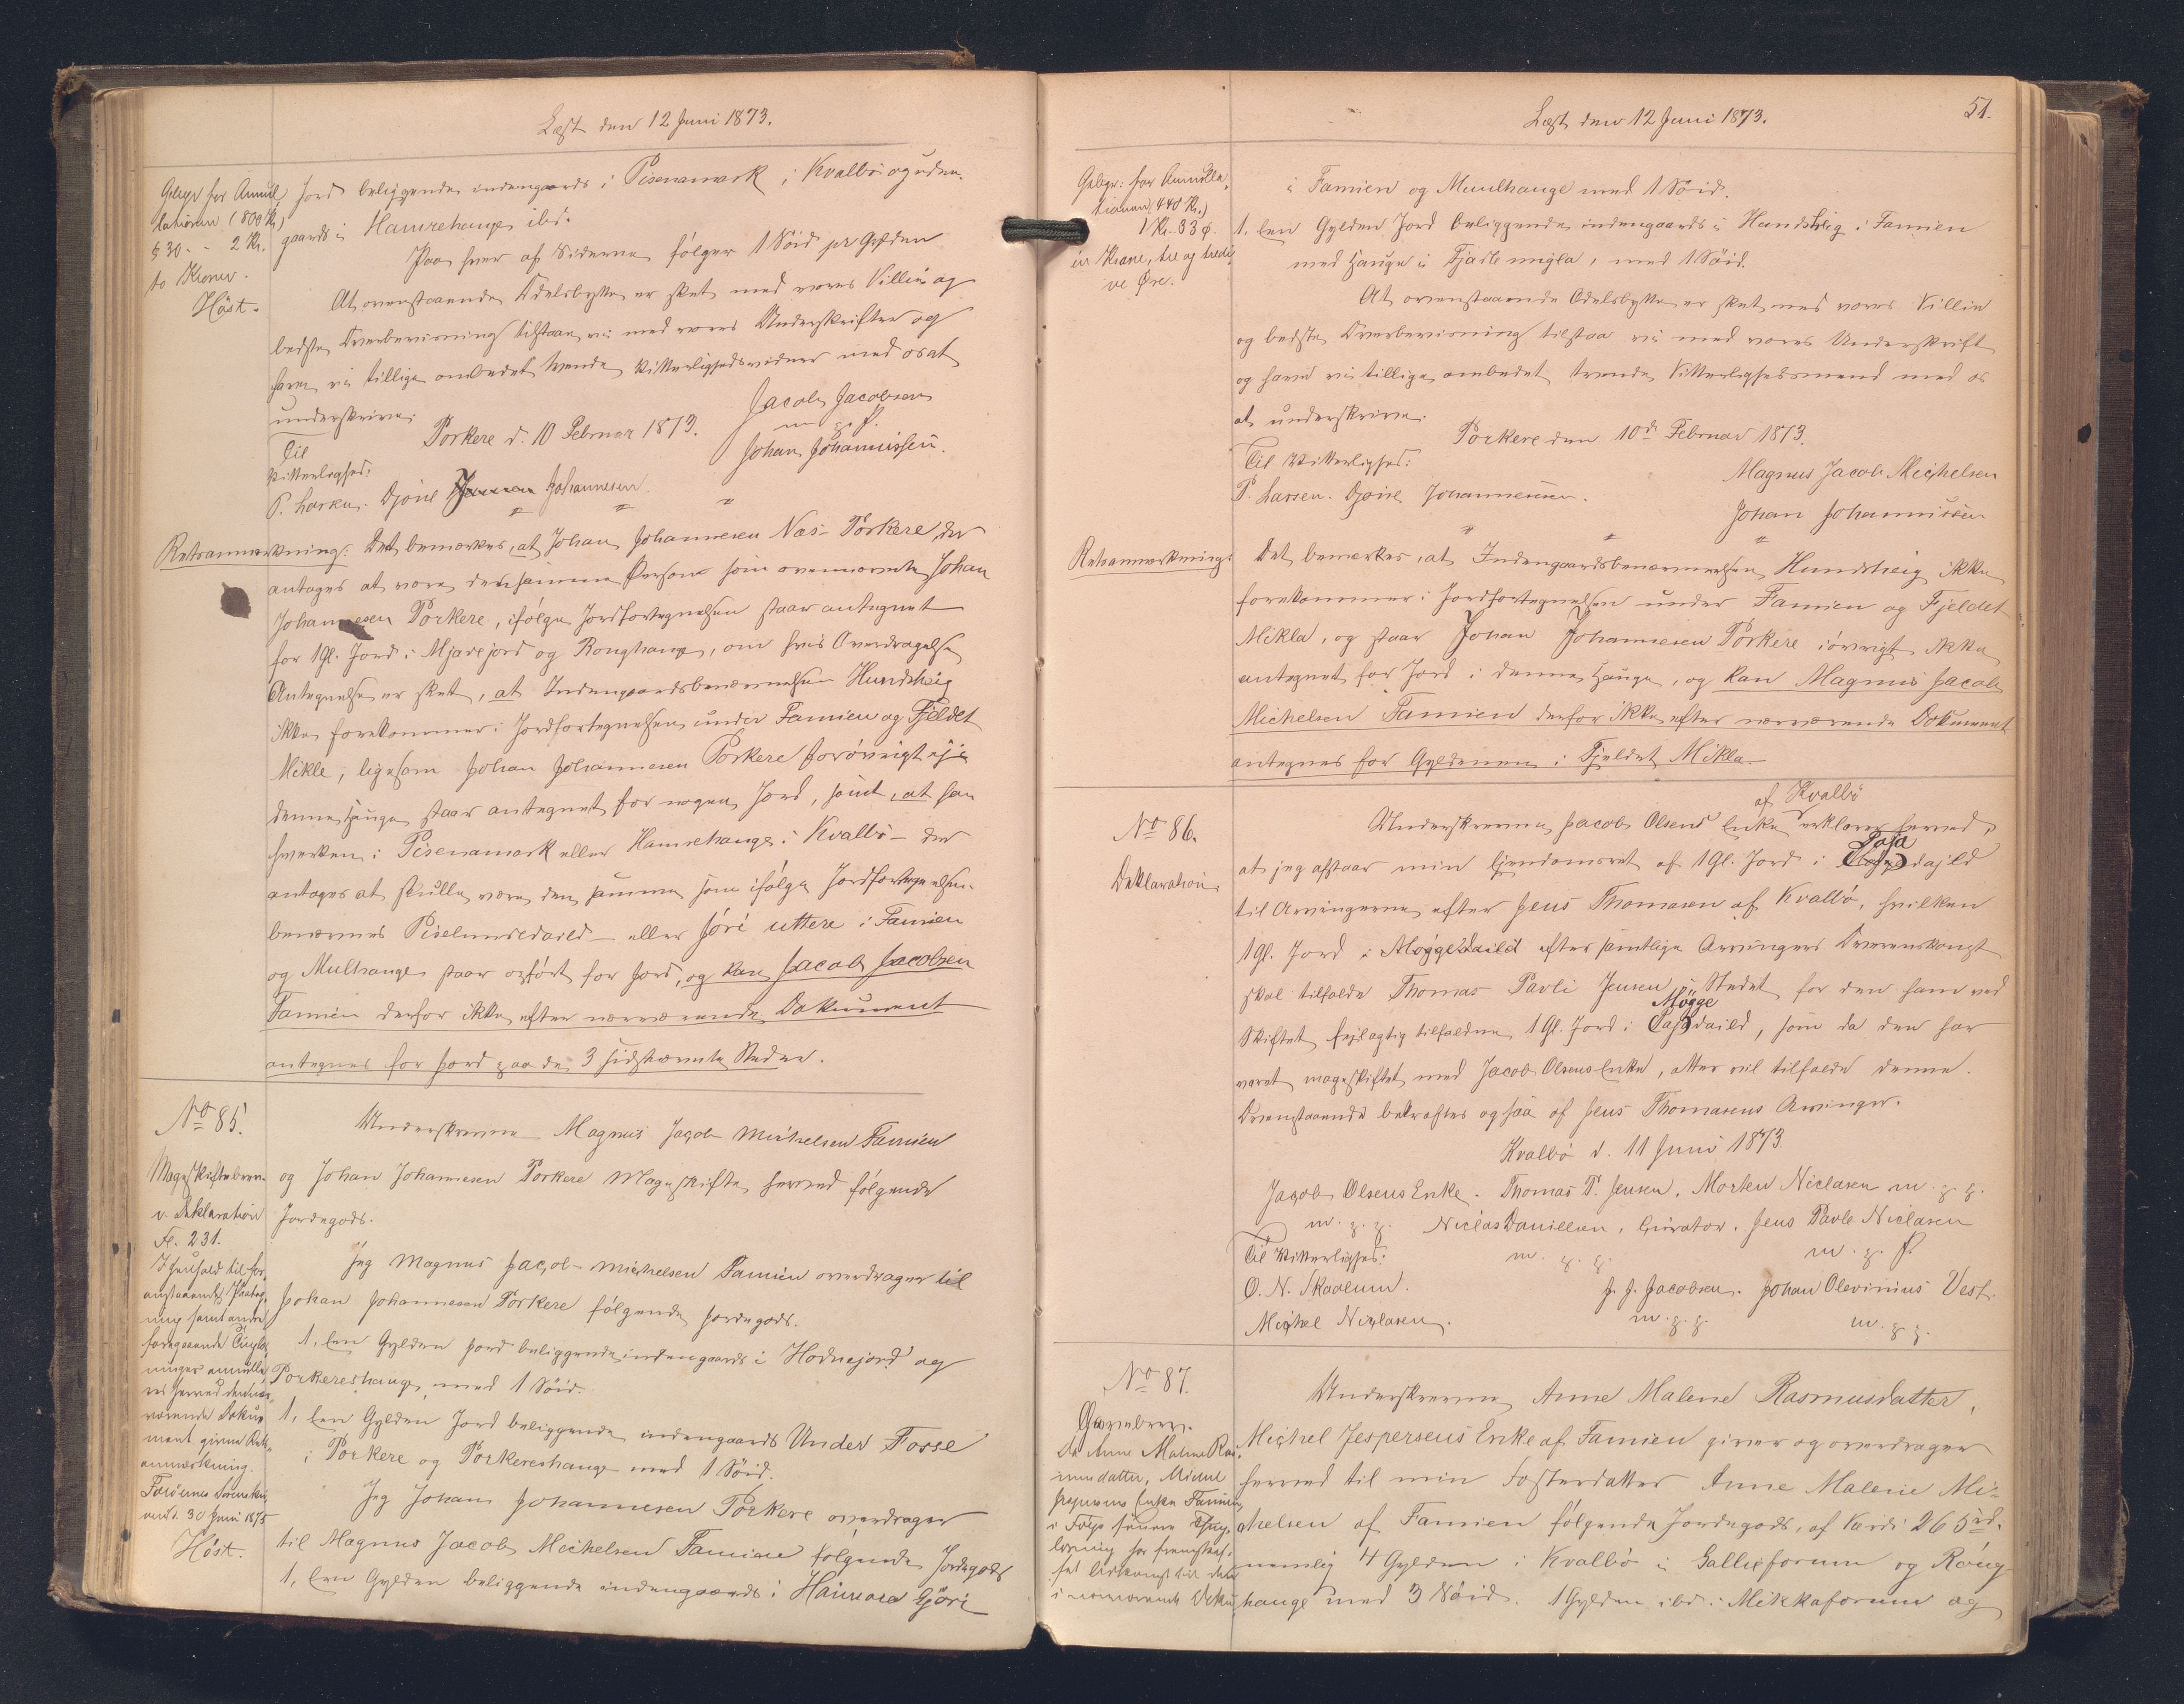 Læst den 12 Juni 1873.
Gebyr for Annul-
lationen (800 Kr)
§ 30 - - 2 Kr.
to Kroner.
Höst.
Jord beliggende indengaards i Pisenamark i Kvalbö og uden-
gaards i Hamrehauge ibd.
Paa hver af Siderne følger 1 Söid pr Gylden
At ovenstaaende Odelsbytte er sket med vores Villie og
bedste Overbevisning tilstaar vi med vores Underskrifter og
have vi tillige ombedet tvende Vitterlighedsvidner med os at
underskrive.
Porkere d. 10 Februar 1873.
Jacob Jacobsen
m. p. P.
Johan Johannissen.
Til
Vitterlighed:
P. Larsen. Djöne Johannesen
Retsanmærkning: Det bemærkes, at Johan Johannesen Næs-Porkere, der
antages at være den samme Person som ovennævnte Johan
Johannesen Porkere, ifølge Jordfortegnelsen staar antegnet
for 1 Gl. Jord i Mjavejord og Ronghauge, om hvis Overdragelse
Antegnelse er sket, at Indengaardsbenævnelsen Hundsheig
ikke forekommer i Jordfortegnelsen under Famien og Fjeldet
Mikle, ligesom Johan Johannesen Porkere forövrigt ej i
denne Hauge staar antegnet for nogen Jord, samt, at han
hverken i Pisenamark eller Hamrehauge i Kvalbö - der
antages at skulle være den samme som ifölge Jordfortegnelsen
benævnes Piselmredaild - eller Jóri uttere i Famien
og Mulhauge staar opført for Jord, og kan Jacob Jacobsen
Famien derfor ikke efter nærværende Dokument
antegnes for Jord paa de 3 sidstnævnte Steder.
No 85.
Mageskiftebrev
v. Deklaration
Fl. 231.
I Henhold til for-
anstaaende Paateg-
ning samt anden
foregaaende
annulle-
res herved den i nær-
værende Doku-
ment givne Rets-
anmærkning.
Færöernes Sorenskri-
veri d. 30 Juni 1875
Höst.
Underskrevne Magnus Jacob Michelsen Famien
og Johan Johannesen Porkere Mageskifte herved følgende
Jordegods.
Jeg Magnus Jacob Michelsen Famien overdrager til
Johan Johannesen Porkere følgende Jordegods.
1, Een Gylden Jord beliggende indengaards i Hodnejord og
Porkereshauge, med 1 Söid.
1, Een Gylden Jord beliggende indengaards Under Fosse
i Porkere og Porkereshauge med 1 Söid.
Jeg Johan Johannesen Porkere overdrager
til Magnus Jacob Michelsen Famien følgende Jordegods
1, Een Gylden beliggende indengaards i Hamara Gjöri
Læst den 12 Juni 1873.
51.
Gebyr: for Annulla-
tionen (440 Kr.)
1 Kr. 33 Ø.
en Krone, tre og tredi-
ve Øre.
i Famien og Muulhauge med 1 Söid.
1. Een Gylden Jord beliggende indengaards i Hundsheig i Famien
med Hauge i Fjaile migla, med 1 Söid.
At ovenstaaende Odelsbytte er sket med vores Villie
og bedste Overbevisning tilstaa vi med vores Underskrift
og have vi tillige ombedet tvende Vitterlighedsmænd med os
at underskrive.
Porkere den 10de Februar 1873.
Til Vitterlighed:
P. Larsen. Djöne Johannesen.
Magnus Jacob Michelsen
Johan Johannissen
Retsanmærkning: Det bemærkes, at Indengaardsbenævnelsen Hundsheig ikke
forekommer i Jordfortegnelsen under Famien og Fjeldet
Mikla, og staar Johan Johannesen Porkere iövrigt ikke
antegnet for Jord i denne Hauge, og kan Magnus Jacob
Michelsen Famien derfor ikke efter nærværende Dokument
antegnes for Gyldenen i Fjeldet Mikla
No 86.
Deklaration.
af Kvalbö
Underskrevne Jacob Olsens Enke erklærer herved,
at jeg afstaar min Ejendomsret af 1 Gl. Jord i Pasa dajld
til Arvingerne efter Jens Thomasen af Kvalbö, hvilken
1 Gl. Jord i Moggedaild efter samtlige Arvingers Overenskomst
skal tilfalde Thomas Pavli Jensen i Stedet for den ham ved
Skiftet fejlagtig tilfaldne 1 Gl. Jord i Mögge daild, som da den har
været mageskiftet med Jacob Olsens Enke, atter vil tilfalde denne.
Ovenstaaende bekræftes ogsaa af Jens Thomasens Arvinger.
Kvalbö d. 11 Juni 1873
Jacob Olsens Enke. Thomas P. Jensen, Morten Niclasen m. p. p.
m. p. p. Niclas Daniellsen, Curator. Jens Pavle Niclasen
Til Vitterlighed: m. p. p. m. p. P.
O. N. Skaalum. J. J. Jacobsen. Johan Olevinius Vest.
Michel Niclasen. m. p. p. m. p. p.
No 87.
Gavebrev.
Da Anne Malene Ras-
musdatter, Michel
Jespersens Enke Famien,
i Følge senere Ting-
læsning har fremskaf-
fet Adkomst til det
i nærværende Doku-
Underskrevne Anne Malene Rasmusdatter,
Michel Jespersens Enke af Famien giver og overdrager
herved til min Fosterdatter Anne Malene Mi-
chelsen af Famien følgende Jordegods, af Værdi 265 rd.
nemlig 4 Gylden i Kvalbö i Galliaforum og Róug
hauge med 3 Söid. 1 Gylden ibd. i Mikkaforum og